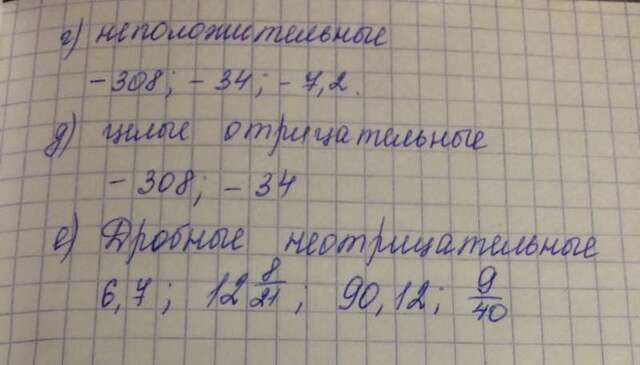 г) неположительные
-308; -34; -7,2.
д) целые отрицательные
-308; -34
е) Дробные неотрицательные
6,7; 12 8/21; 90,12; 9/40